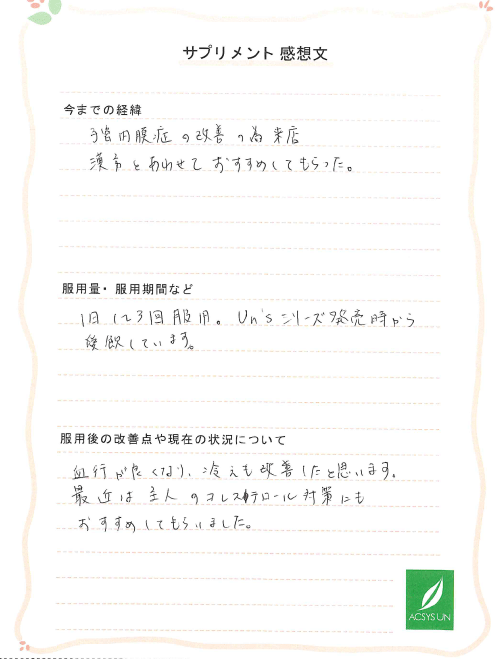 サプリメント 感想文
今までの経緯
子宮内膜症の改善の為来店
漢方とあわせておすすめしてもらった。
服用量・服用期間など
1日に3回服用。Un'sシリーズ発売時から
飲しています。
服用後の改善点や現在の状況について
血行が良くなり、冷えも改善したと思います。
最近は主人のコレステロール対策にも
おすすめしてもらいました。
ACSYS UN